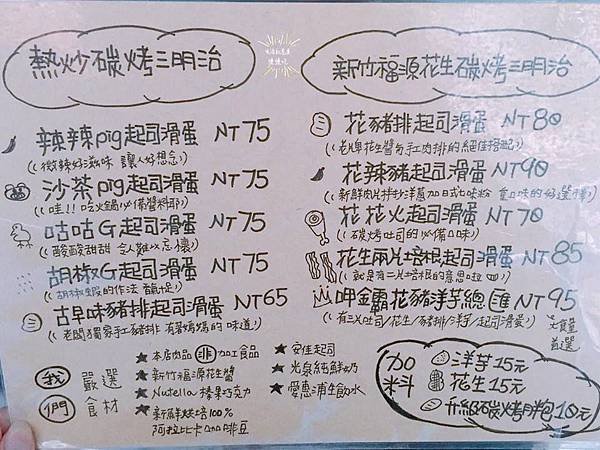 熱炒碳烤三明治
辣辣pig起司滑蛋 NT75
(微辣好滋味 讓人好想念)
沙茶pig起司滑蛋 NT75
(哇!! 吃火鍋必備醬料耶)
咕咕G起司滑蛋 NT75
(酸酸甜甜 令人難以忘懷)
胡椒G起司滑蛋 NT75
(胡椒蝦的作法 香氣足)
古早味豬排起司滑蛋 NT65
(老闆獨家手工豬排 有著媽媽的味道)
新竹福源花生碳烤三明治
花豬排起司滑蛋 NT80
(老牌花生醬與手工肉排的絕佳搭配)
花辣豬起司滑蛋 NT90
(新鮮肉片拌炒洋蔥加日式七味粉 重口味的好選擇)
花花火起司滑蛋 NT70
(碳烤吐司的必備口味)
花生兩片培根起司滑蛋 NT85
(就是有二片培根的意思啦)
呷金霸花豬洋芋總匯 NT95
(有三片吐司/花生/豬排/洋芋/起司滑蛋)
大食量首選
我們 嚴選食材
★本店肉品 非 加工食品
★新竹福源花生醬
★Nutella 榛果巧克力
★新鮮烘培100%
阿拉比卡咖啡豆
★安佳起司
★光泉純鮮奶
★愛惠浦生飲水
加料
洋芋15元
花生15元
升級碳烤胖包10元